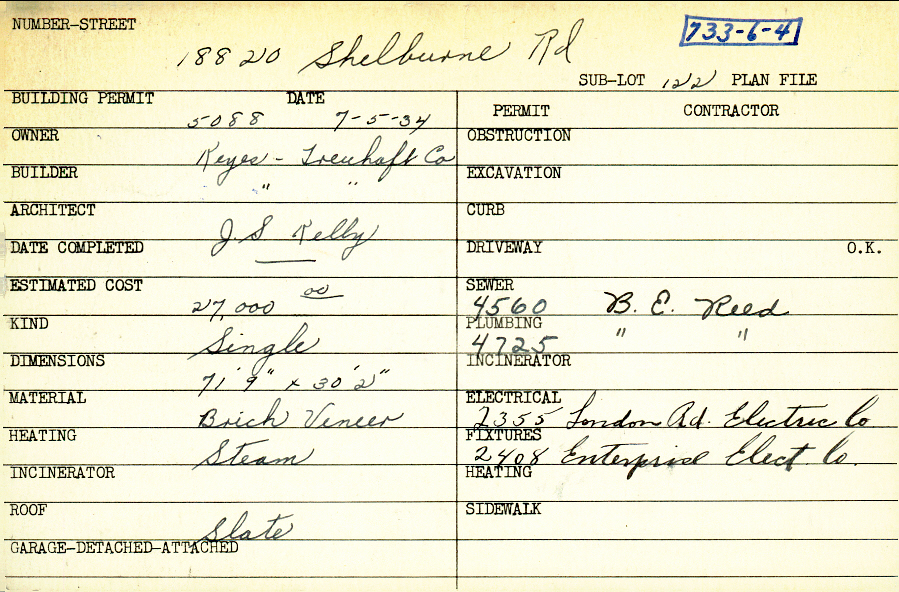 NUMBER-STREET
18820 Shelburne Rd
733-6-4
SUB-LOT 122 PLAN FILE
BUILDING PERMIT DATE
5088 7-5-34
OWNER
Keyes - Treuhaft Co
BUILDER
" "
ARCHITECT
J.S Kelly
DATE COMPLETED
ESTIMATED COST
27,000 00
KIND
Single
DIMENSIONS
71'9" x 30'2"
MATERIAL
Brick Veneer
HEATING
Steam
INCINERATOR
ROOF
Slate
GARAGE-DETACHED-ATTACHED
PERMIT CONTRACTOR
OBSTRUCTION
EXCAVATION
CURB
DRIVEWAY O.K.
SEWER
4560 B. E. Reed
PLUMBING
4725 " "
INCINERATOR
ELECTRICAL
2355 London Rd. Electric Co
FIXTURES
2408 Enterprise Elect. Co.
HEATING
SIDEWALK